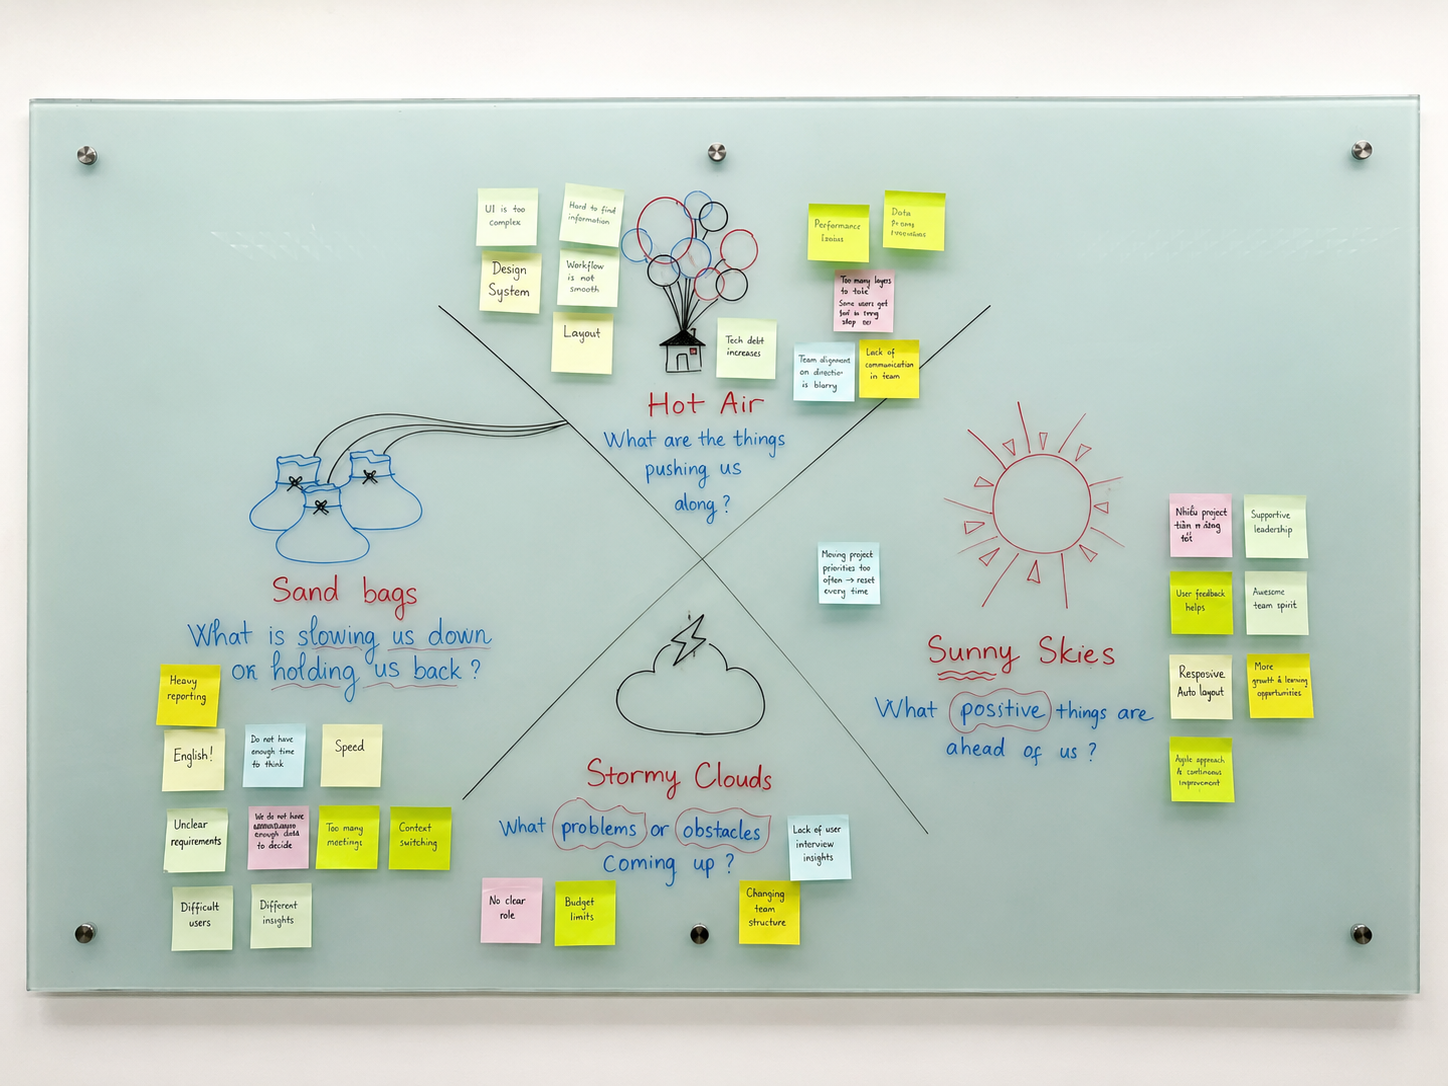 UI is too
complex
Hard to find
information
Design
System
Workflow
is not
smooth
Layout
Tech debt
increases
Performance
Data
Too many layers
to
Some users get
in
Team alignment
on direction
is blurry
Lack of
communication
in team
Hot Air
What are the things
pushing us
along?
Sand bags
What is slowing us down
or holding us back?
Heavy
reporting
English!
Do not have
enough time
to think
Speed
Unclear
requirements
We do not have
enough data
to decide
Too many
meetings
Context
switching
Difficult
users
Different
insights
Moving project
priorities too
often → reset
every time
Sunny Skies
What positive things are
ahead of us?
Nhiều project
tốt
Supportive
leadership
User feedback
helps
Awesome
team spirit
Resposive
Auto layout
More
growth & learning
opportunities
Agile approach
& continuous
improvement
Stormy Clouds
What problems or obstacles
coming up?
Lack of user
interview
insights
No clear
role
Budget
limits
Changing
team
structure